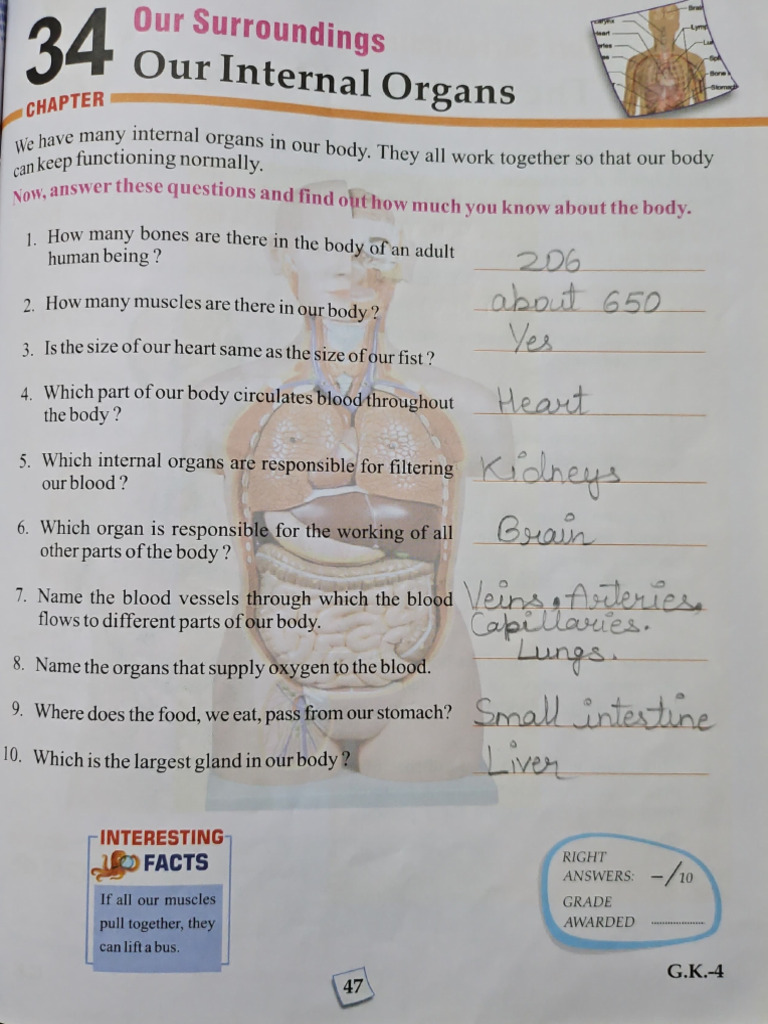 34
CHAPTER
Our Surroundings
Our Internal Organs
Heart
Brain
Lymp
Bone
Stomach
We have many internal organs in our body. They all work together so that our body
can keep functioning normally.
Now, answer these questions and find out how much you know about the body.
1. How many bones are there in the body of an adult
human being ?
206
2. How many muscles are there in our body ?
about 650
3. Is the size of our heart same as the size of our fist ?
Yes
4. Which part of our body circulates blood throughout
the body ?
Heart
5. Which internal organs are responsible for filtering
our blood ?
Kidneys
6. Which organ is responsible for the working of all
other parts of the body ?
Brain
7. Name the blood vessels through which the blood
flows to different parts of our body.
Veins, Arteries,
Capillaries.
8. Name the organs that supply oxygen to the blood.
Lungs.
9. Where does the food, we eat, pass from our stomach?
Small intestine
10. Which is the largest gland in our body ?
Liver
INTERESTING
FACTS
If all our muscles
pull together, they
can lift a bus.
RIGHT
ANSWERS: -/10
GRADE
AWARDED
47
G.K.-4